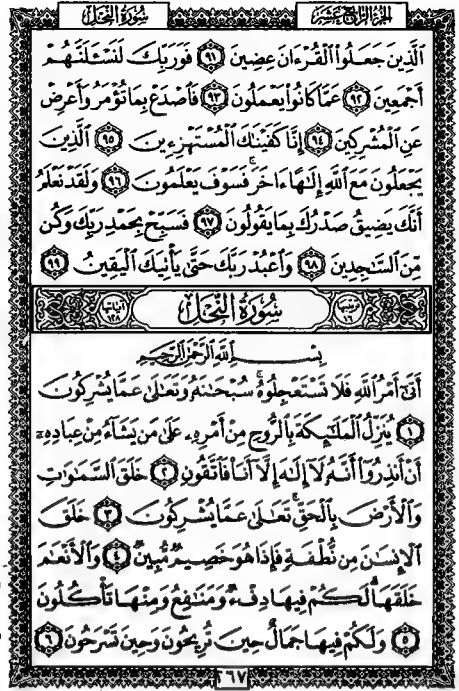 سُورَةُ النَّحْلِ الجُزءُ الرَّابِعَ عَشَرَ
الَّذِينَ جَعَلُوا۟ الْقُرْءَانَ عِضِينَ ٩١ فَوَرَبِّكَ لَنَسْـَٔلَنَّهُمْ
أَجْمَعِينَ ٩٢ عَمَّا كَانُوا۟ يَعْمَلُونَ ٩٣ فَاصْدَعْ بِمَا تُؤْمَرُ وَأَعْرِضْ
عَنِ الْمُشْرِكِينَ ٩٤ إِنَّا كَفَيْنَٰكَ الْمُسْتَهْزِءِينَ ٩٥ الَّذِينَ
يَجْعَلُونَ مَعَ اللَّهِ إِلَٰهًا ءَاخَرَ ۚ فَسَوْفَ يَعْلَمُونَ ٩٦ وَلَقَدْ نَعْلَمُ
أَنَّكَ يَضِيقُ صَدْرُكَ بِمَا يَقُولُونَ ٩٧ فَسَبِّحْ بِحَمْدِ رَبِّكَ وَكُن
مِّنَ السَّٰجِدِينَ ٩٨ وَاعْبُدْ رَبَّكَ حَتَّىٰ يَأْتِيَكَ الْيَقِينُ ٩٩
ترتيبها ١٦ سُورَةُ النَّحْلِ آياتها ١٢٨
بِسْمِ اللَّهِ الرَّحْمَٰنِ الرَّحِيمِ
أَتَىٰٓ أَمْرُ اللَّهِ فَلَا تَسْتَعْجِلُوهُ ۚ سُبْحَٰنَهُۥ وَتَعَٰلَىٰ عَمَّا يُشْرِكُونَ
١ يُنَزِّلُ الْمَلَٰٓئِكَةَ بِالرُّوحِ مِنْ أَمْرِهِۦ عَلَىٰ مَن يَشَآءُ مِنْ عِبَادِهِۦٓ
أَنْ أَنذِرُوٓا۟ أَنَّهُۥ لَآ إِلَٰهَ إِلَّآ أَنَا۠ فَاتَّقُونِ ٢ خَلَقَ السَّمَٰوَٰتِ
وَالْأَرْضَ بِالْحَقِّ ۚ تَعَٰلَىٰ عَمَّا يُشْرِكُونَ ٣ خَلَقَ
الْإِنسَٰنَ مِن نُّطْفَةٍ فَإِذَا هُوَ خَصِيمٌ مُّبِينٌ ٤ وَالْأَنْعَٰمَ
خَلَقَهَا ۗ لَكُمْ فِيهَا دِفْءٌ وَمَنَٰفِعُ وَمِنْهَا تَأْكُلُونَ
٥ وَلَكُمْ فِيهَا جَمَالٌ حِينَ تُرِيحُونَ وَحِينَ تَسْرَحُونَ ٦
٢٦٧